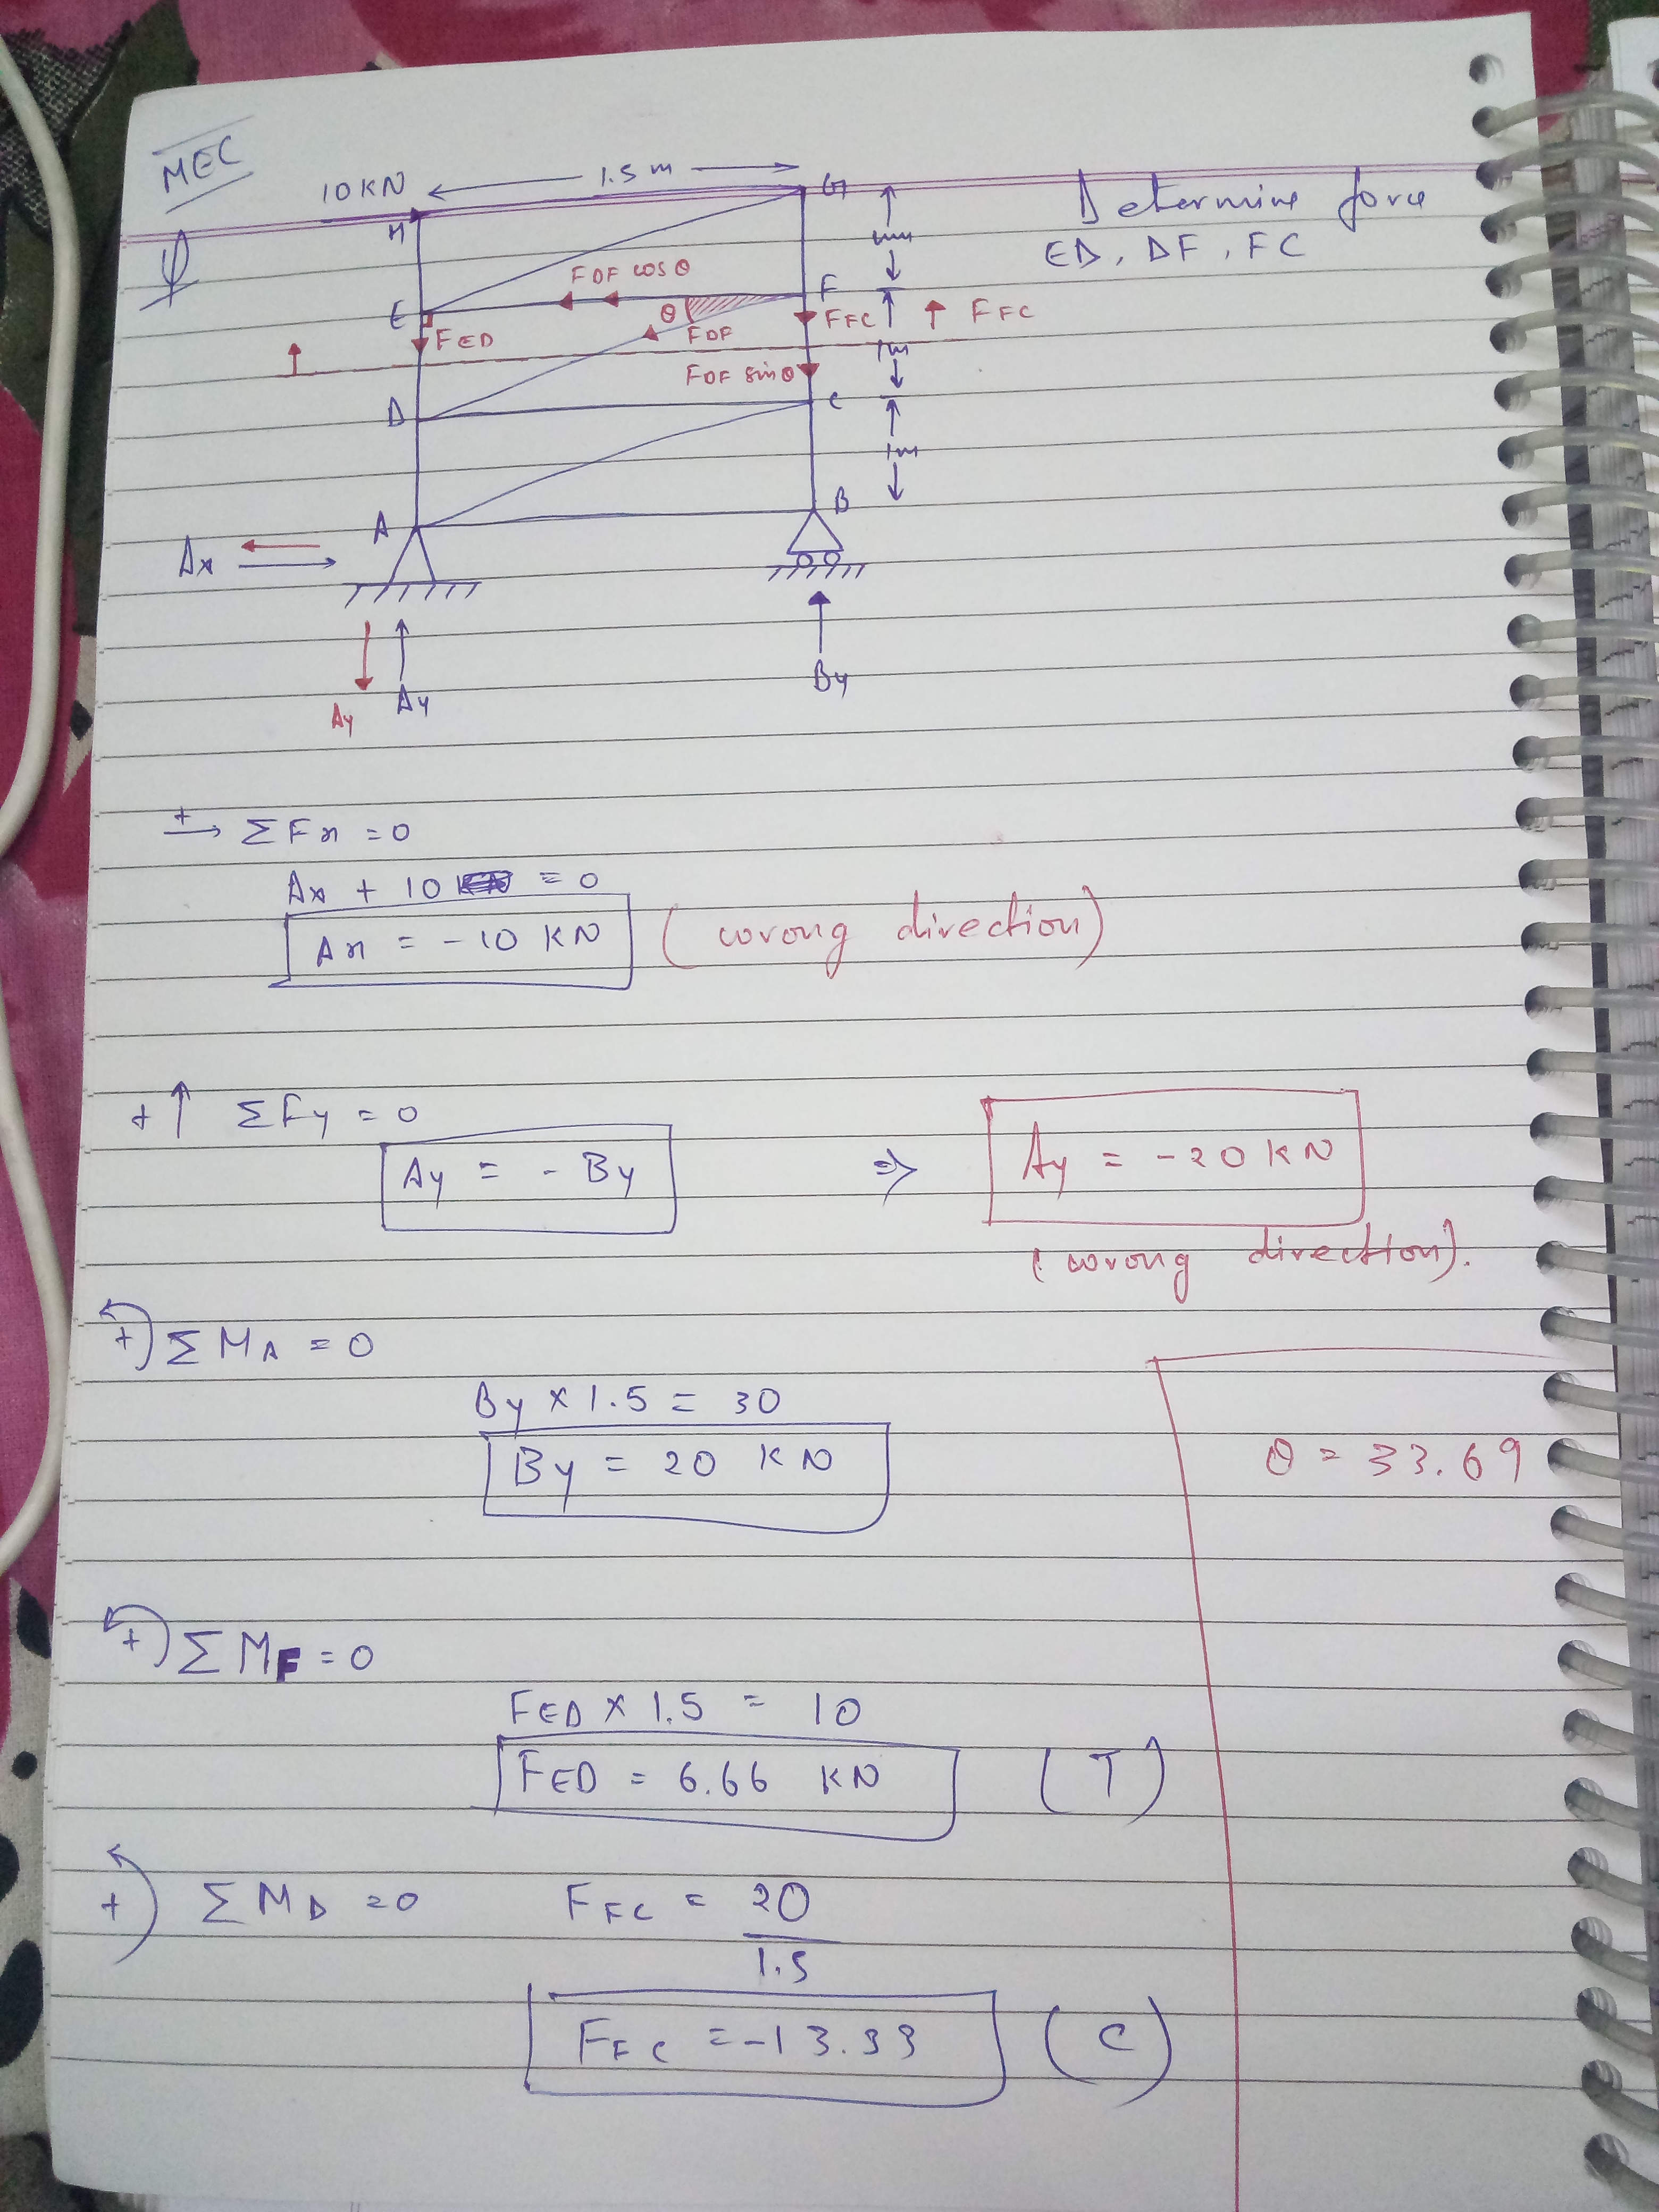 MEC
10 KN 1.5 m G
Determine force
ED, DF, FC
H
1m
FDF cos θ
E F
θ
FED FDF FFC FFC
1m
FDF sin θ
D C
1m
A B
Ax
Ay Ay By
+ → ΣFx = 0
Ax + 10 = 0
Ax = -10 KN (wrong direction)
+ ↑ ΣFy = 0
Ay = - By ⇒ Ay = -20 KN
(wrong direction).
+) ΣMA = 0
By × 1.5 = 30
By = 20 KN
θ = 33.69
+) ΣMF = 0
FED × 1.5 = 10
FED = 6.66 KN (T)
+) ΣMD = 0 FFC = 20
1.5
FFC = -13.33 (C)